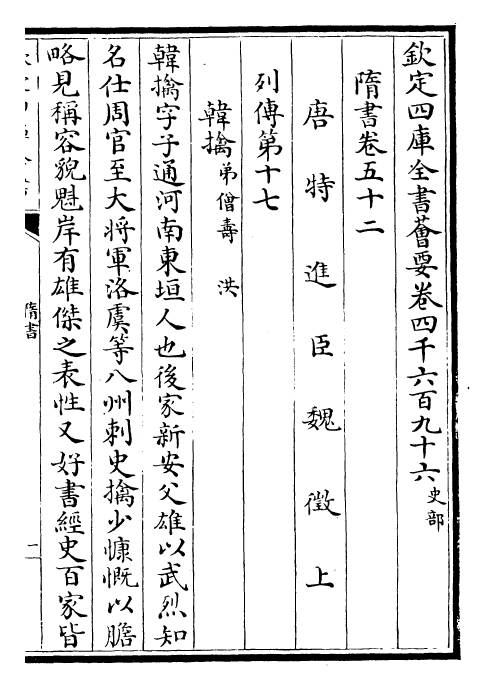 欽定四庫全書薈要卷四千六百九十六史部
隋書卷五十二
唐特進臣魏徵上
列傳第十七
韓擒弟僧壽 洪
韓擒字子通河南東垣人也後家新安父雄以武烈知
名仕周官至大將軍洛虞等八州刺史擒少慷慨以膽
略見稱容貌魁岸有雄傑之表性又好書經史百家皆
隋書
一